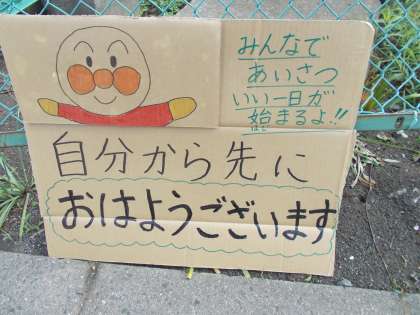 みんなで
あいさつ
いい一日が
始まるよ!!
はじ
自分から先に
おはようございます